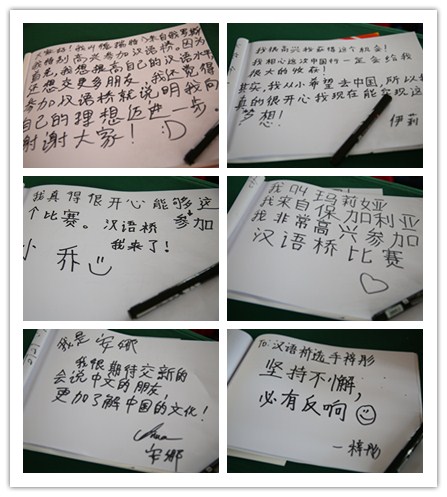 家好!我叫
我特别高兴参加汉语桥。因为
首先,我想提高自己的汉语水平
还想交更多朋友,我还觉得
参加汉语桥就说明我向
自己的理想迈进一步.
谢谢大家! :D
我很高兴我获得这个机会!
我相心这次中国行一定会给我
很大的收获!
其实,我从小希望去中国,所以我
真的很开心我现在能实现这
梦想!
伊莉
我真得很开心能够这
个比赛。汉语桥 参加
我来了!
小乔
我叫玛莉娅
我来自保加利亚
我非常高兴参加
汉语桥比赛
我是安娜
我很期待交新的
会说中文的朋友,
更加了解中国的文化!
Anna
安娜
To:汉语桥选手梓彤
坚持不懈,
必有反响
—梓彤